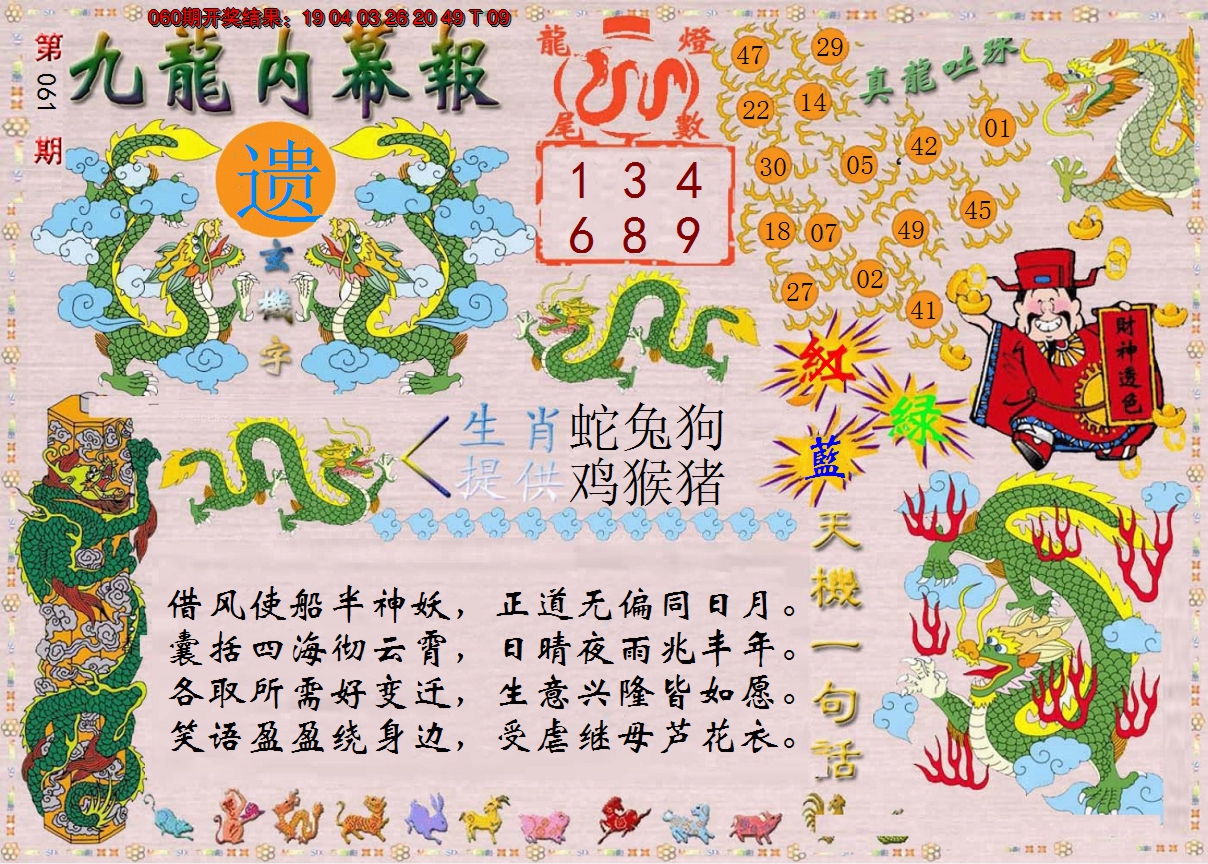 060期开奖结果：19 04 03 26 20 49 T 09
第061期
九龍内幕報
遗
玄機字
龍燈
尾數
1 3 4
6 8 9
真龍吐珠
47 29
22 14
30 05 42 01
18 07 49 45
27 02 41
財神透色
紅
綠
藍
生肖 蛇兔狗
提供 鸡猴猪
天機一句話
借风使船半神妖，正道无偏同日月。
囊括四海彻云霄，日晴夜雨兆丰年。
各取所需好变迁，生意兴隆皆如愿。
笑语盈盈绕身边，受虐继母芦花衣。